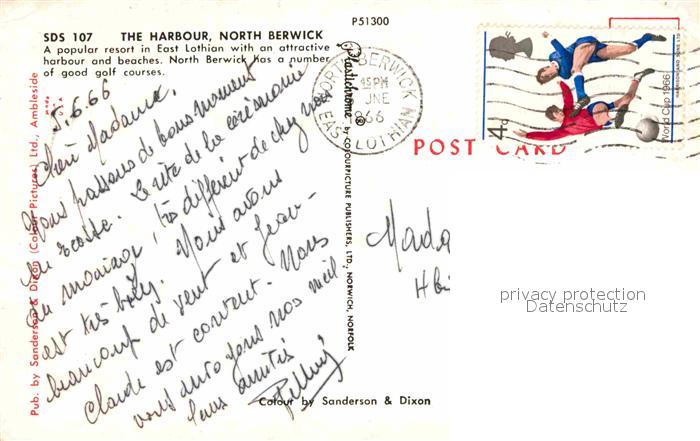 P51300
SDS 107 THE HARBOUR, NORTH BERWICK
A popular resort in East Lothian with an attractive
harbour and beaches. North Berwick has a number
of good golf courses.
5.6.66
Chère Madame,
Nous passons de bons moments
en Ecosse. Le rite de la cérémonie
du mariage, très différent de chez nous
est très
beaucoup de vent et Jean-
Claude est content. Nous
vous envoyons nos meil
leurs amitiés
Pub. by Sanderson & Dixon (Colour Pictures) Ltd., Ambleside
Plastichrome ® by COLOURPICTURE PUBLISHERS, LTD., NORWICH, NORFOLK
NORTH BERWICK
PM
JNE
66
EAST LOTHIAN
4d
World Cup 1966
HARRISON AND SONS LTD
POST CARD
Mada
privacy protection
Datenschutz
Colour by Sanderson & Dixon